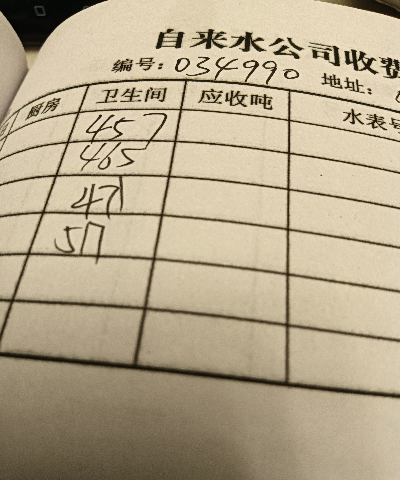 自来水公司收费
编号: 034990 地址:
厨房 卫生间 应收吨 水表号
457
465
471
517